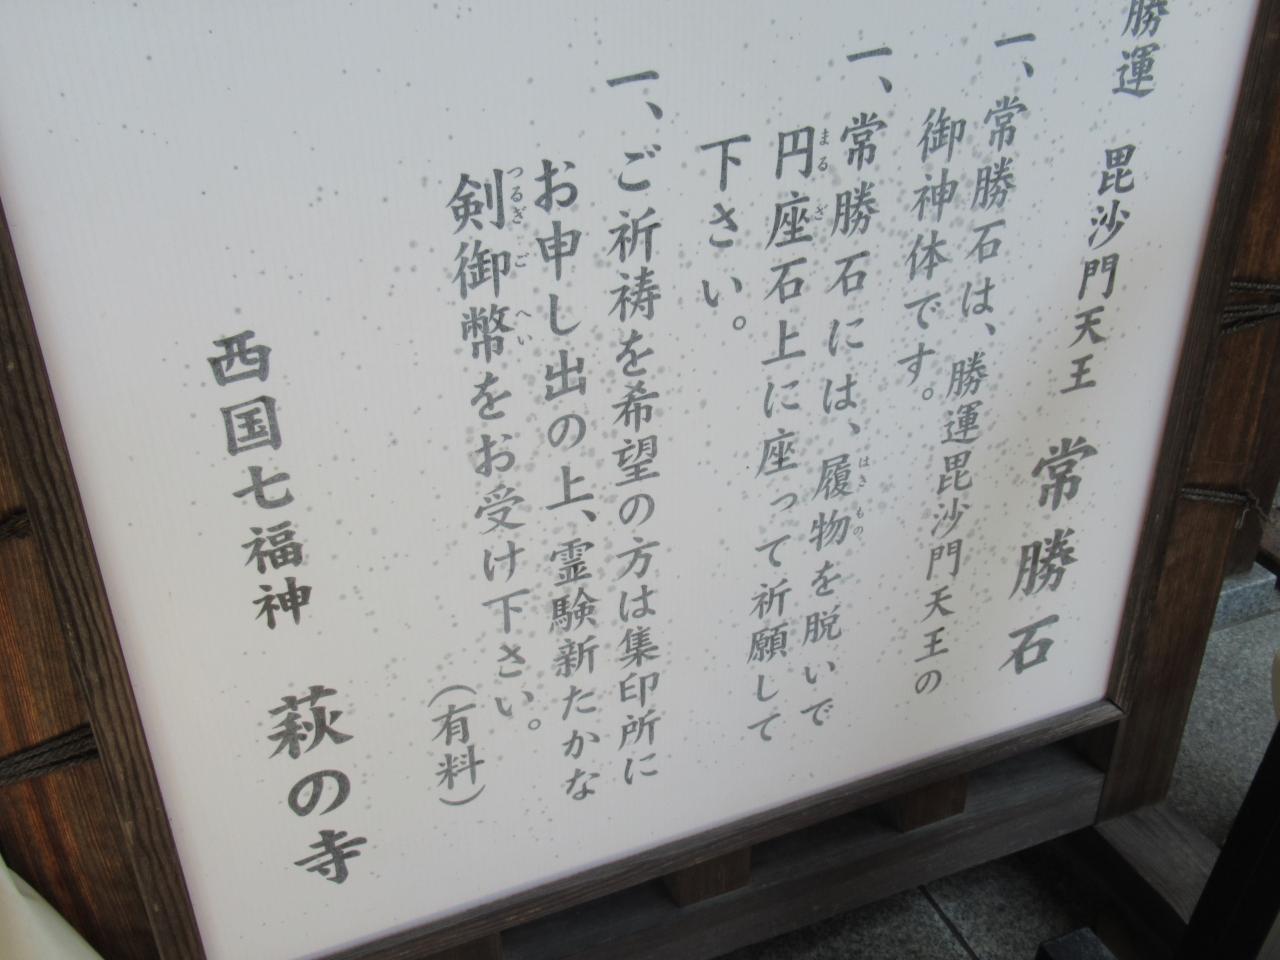 勝運 毘沙門天王 常勝石
一、常勝石は、勝運毘沙門天王の
御神体です。
一、常勝石には、履物を脱いで
はきもの
円座石上に座って祈願して
まるざ
下さい。
一、ご祈祷を希望の方は集印所に
お申し出の上、霊験新たかな
剣御幣をお受け下さい。
つるぎごへい
（有料）
西国七福神 萩の寺